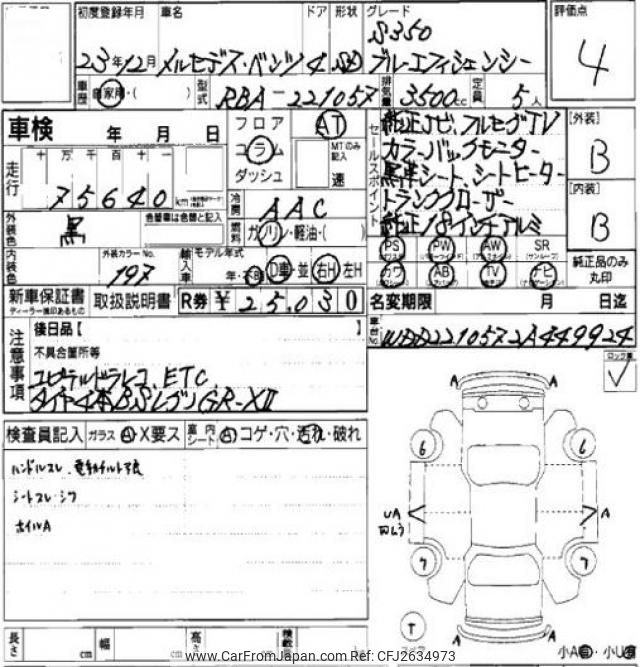 初度登録年月 車名 ドア 形状 グレード 評価点
S350
23年12月 メルセデス・ベンツ 4 SD ブルーエフィシェンシー 4
車歴 自家用・( ) 型式 RBA-221057 排気量 3500cc 定員 5人
車検 年 月 日
フロア コラム ダッシュ
AT
MTのみ記入
速
セールスポイント
純正ナビ、フルセグTV
カラーバックモニター
黒革シート、シートヒーター
トランククローザー
純正18インチアルミ
[外装]
B
[内装]
B
走行 十 万 千 百 十 一
75640 km
冷房 AAC
燃料 ガソリン・軽油・( )
外装色 黒 色替車は色替と記入
内装色 外装カラーNo. 197
輸入車 モデル年式
年・不明 D車・並 右H 左H
PS PW AW SR
(サンルーフ)
カワ AB TV ナビ
純正品のみ丸印
新車保証書 取扱説明書 R券 ¥ 25,030
ディーラー捺印あるもの
名変期限 月 日迄
車台No. WDD2210572A449924
注意事項
後日品【 】
不具合箇所等
ユピテルドラレコ、ETC
タイヤ4本B.SレグノGR-XII
検査員記入 ガラス A X要ス 室内シート A コゲ・穴・汚れ・破れ
ハンドルスレ、電動チルト不良
シートスレ・シワ
ホイルA
A A
6 6
UA A
7 7
T
A A
長さ cm 幅 cm 高さ cm 積載
小A・小U
www.CarFromJapan.com Ref: CFJ2634973